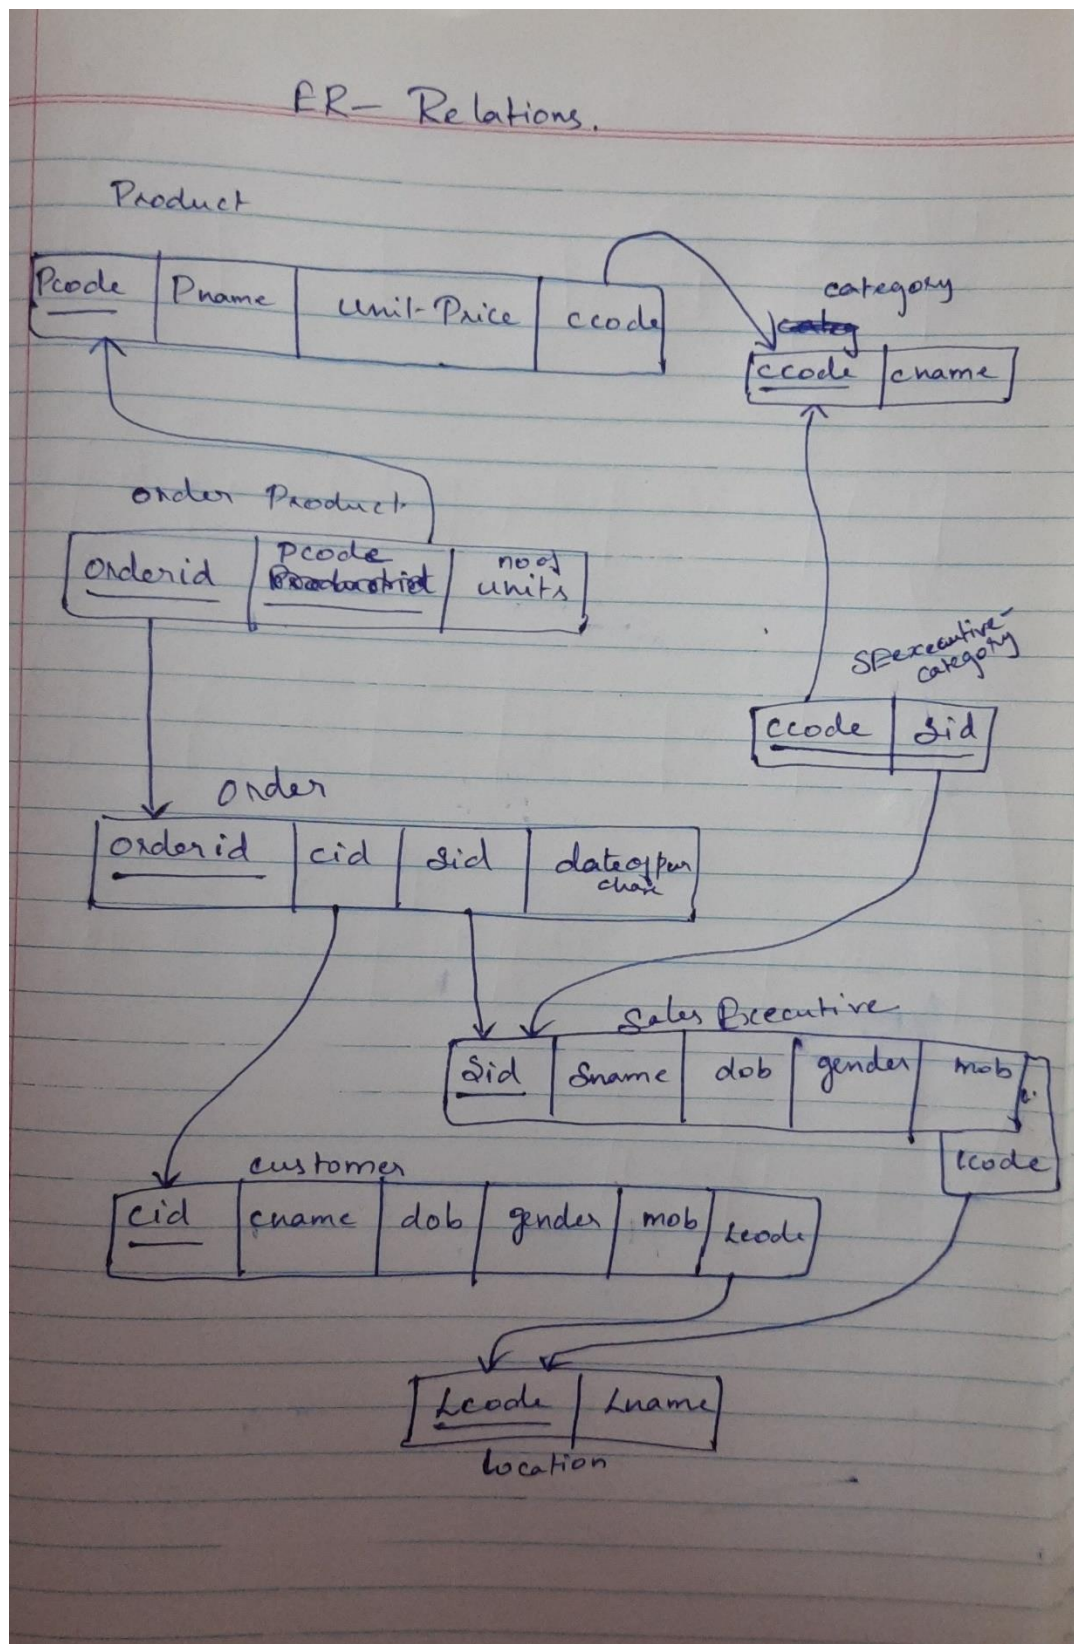 ER- Relations.
Product
Pcode Pname Unit-Price ccode
category
ccode cname
order Product
orderid Pcode no of
units
SExecutive-
category
ccode Sid
order
orderid cid Sid dateofpur
chase
Sales Executive
Sid Sname dob gender mob
lcode
customer
cid cname dob gender mob Lcode
Lcode Lname
location